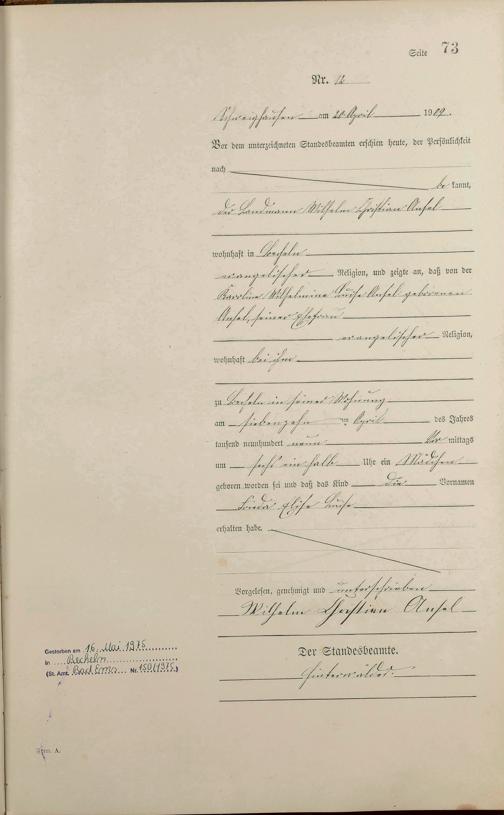 Seite 73
Nr. 12
Schweighausen am 20 April 1909.
Vor dem unterzeichneten Standesbeamten erschien heute, der Persönlichkeit
nach
be kannt,
der Landmann Wilhelm Christian Ansel
wohnhaft in Becheln
evangelischer Religion, und zeigte an, daß von der
Karoline Wilhelmine Luise Ansel geborenen
Ansel, seiner Ehefrau
evangelischer Religion,
wohnhaft bei ihm
zu Becheln in seiner Wohnung
am siebenzehn ten April des Jahres
tausend neunhundert neun Vor mittags
um sechs ein halb Uhr ein Mädchen
geboren worden sei und daß das Kind die Vornamen
Frieda Elise Luise
erhalten habe.
Vorgelesen, genehmigt und unterschrieben
Wilhelm Christian Ansel
Der Standesbeamte.
Hinterwälder.
Gestorben am 16. Mai 1975
in Becheln
(St. Amt. Bad Ems Nr. 150/1975)
Form. A.